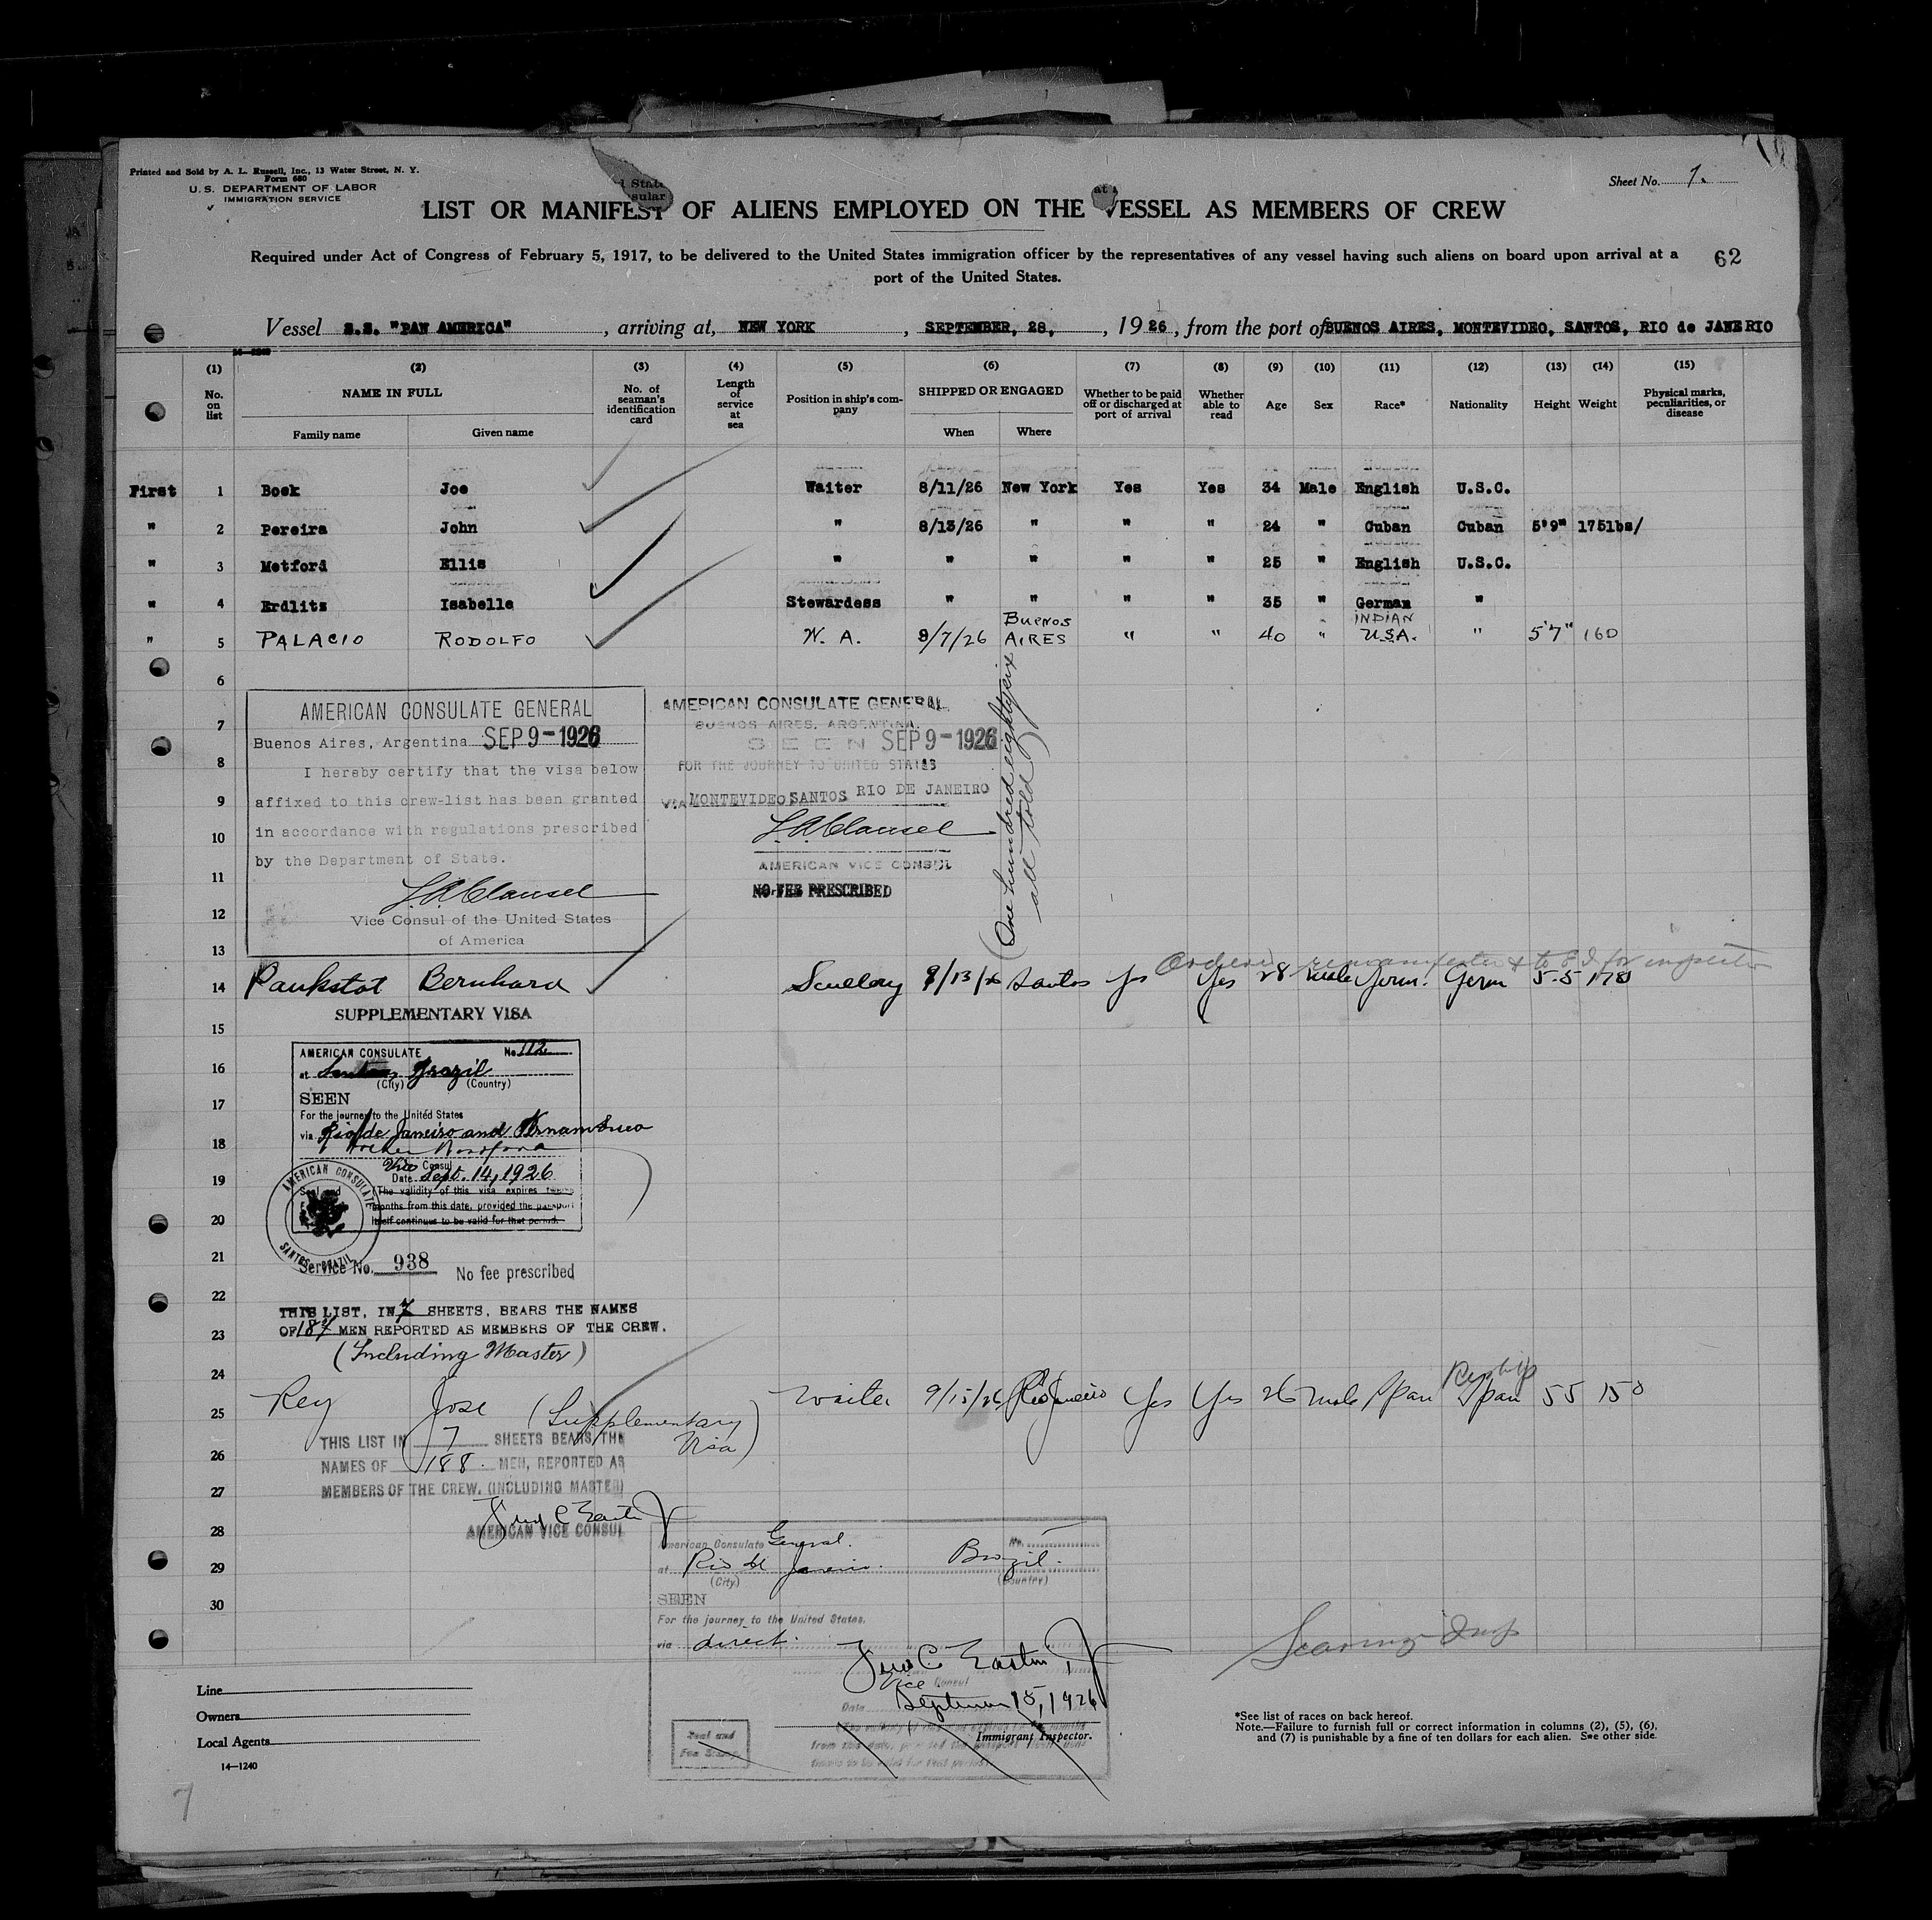 Printed and Sold by A. L. Russell, Inc., 13 Water Street, N. Y.
Form 680
U. S. DEPARTMENT OF LABOR
IMMIGRATION SERVICE
Sheet No. 7.
LIST OR MANIFEST OF ALIENS EMPLOYED ON THE VESSEL AS MEMBERS OF CREW
Required under Act of Congress of February 5, 1917, to be delivered to the United States immigration officer by the representatives of any vessel having such aliens on board upon arrival at a
port of the United States.
62
Vessel S.S. "PAN AMERICA", arriving at, NEW YORK, SEPTEMBER, 28, , 1926, from the port of BUENOS AIRES, MONTEVIDEO, SANTOS, RIO de JANERIO
14-1240
(1) (2) (3) (4) (5) (6) (7) (8) (9) (10) (11) (12) (13) (14) (15)
No. on list NAME IN FULL Family name Given name No. of seaman's identification card Length of service at sea Position in ship's company SHIPPED OR ENGAGED When Where Whether to be paid off or discharged at port of arrival Whether able to read Age Sex Race* Nationality Height Weight Physical marks, peculiarities, or disease
First 1 Book Joe Waiter 8/11/26 New York Yes Yes 34 Male English U.S.C.
" 2 Pereira John " 8/13/26 " " " 24 " Cuban Cuban 5'9" 175lbs/
" 3 Metford Ellis " " " " " 25 " English U.S.C.
" 4 Erdlitz Isabelle Stewardess " " " " 35 " German "
" 5 PALACIO RODOLFO W. A. 9/7/26 BUENOS AIRES " " 40 " INDIAN U.S.A. " 5'7" 160
6
7
8
9
10
11
12
13
AMERICAN CONSULATE GENERAL
Buenos Aires, Argentina SEP 9-1926
I hereby certify that the visa below
affixed to this crew-list has been granted
in accordance with regulations prescribed
by the Department of State.
L.A.Clausel
Vice Consul of the United States
of America
AMERICAN CONSULATE GENERAL
BUENOS AIRES, ARGENTINA.
SEEN SEP 9-1926
FOR THE JOURNEY TO UNITED STATES
VIA MONTEVIDEO SANTOS RIO DE JANEIRO
L.A.Clausel
AMERICAN VICE CONSUL
NO FEE PRESCRIBED
(One hundred eighty six
all told)
Ordered remanifested & to E.I. for inspection
14 Paukstat Bernhard Scullery 9/13/26 Santos Yes Yes 28 male Germ. Germ 5-5 170
15
SUPPLEMENTARY VISA
16
17
18
19
20
21
AMERICAN CONSULATE No. 112
at Santos Brazil
(City) (Country)
SEEN
For the journey to the United States
via Rio de Janeiro and Pernambuco
Vice Consul
Date Sept. 14, 1926
(The validity of this visa expires twelve
months from this date, provided the passport
itself continues to be valid for that period.
AMERICAN CONSULATE
SANTOS, BRAZIL
Service No. 938 No fee prescribed
22
THIS LIST, IN 7 SHEETS, BEARS THE NAMES
23
OF 187 MEN REPORTED AS MEMBERS OF THE CREW.
(Including Master)
24
25 Rey Jose (Supplementary Visa) Waiter 9/15/26 Rio Janeiro Yes Yes 26 male Span Span 55 150
THIS LIST IN 7 SHEETS BEARS THE
26
NAMES OF 188. MEN, REPORTED AS
27
MEMBERS OF THE CREW. (INCLUDING MASTER)
28
AMERICAN VICE CONSUL
29
30
American Consulate General. No.
at Rio de Janeiro. Brazil.
(City) (Country)
SEEN
For the journey to the United States.
via direct.
Vice Consul
Date September 15, 1926
Seal and
Fee Stamp
Immigrant Inspector.
Line
Owners
Local Agents
14—1240
*See list of races on back hereof.
Note.—Failure to furnish full or correct information in columns (2), (5), (6),
and (7) is punishable by a fine of ten dollars for each alien. See other side.
7